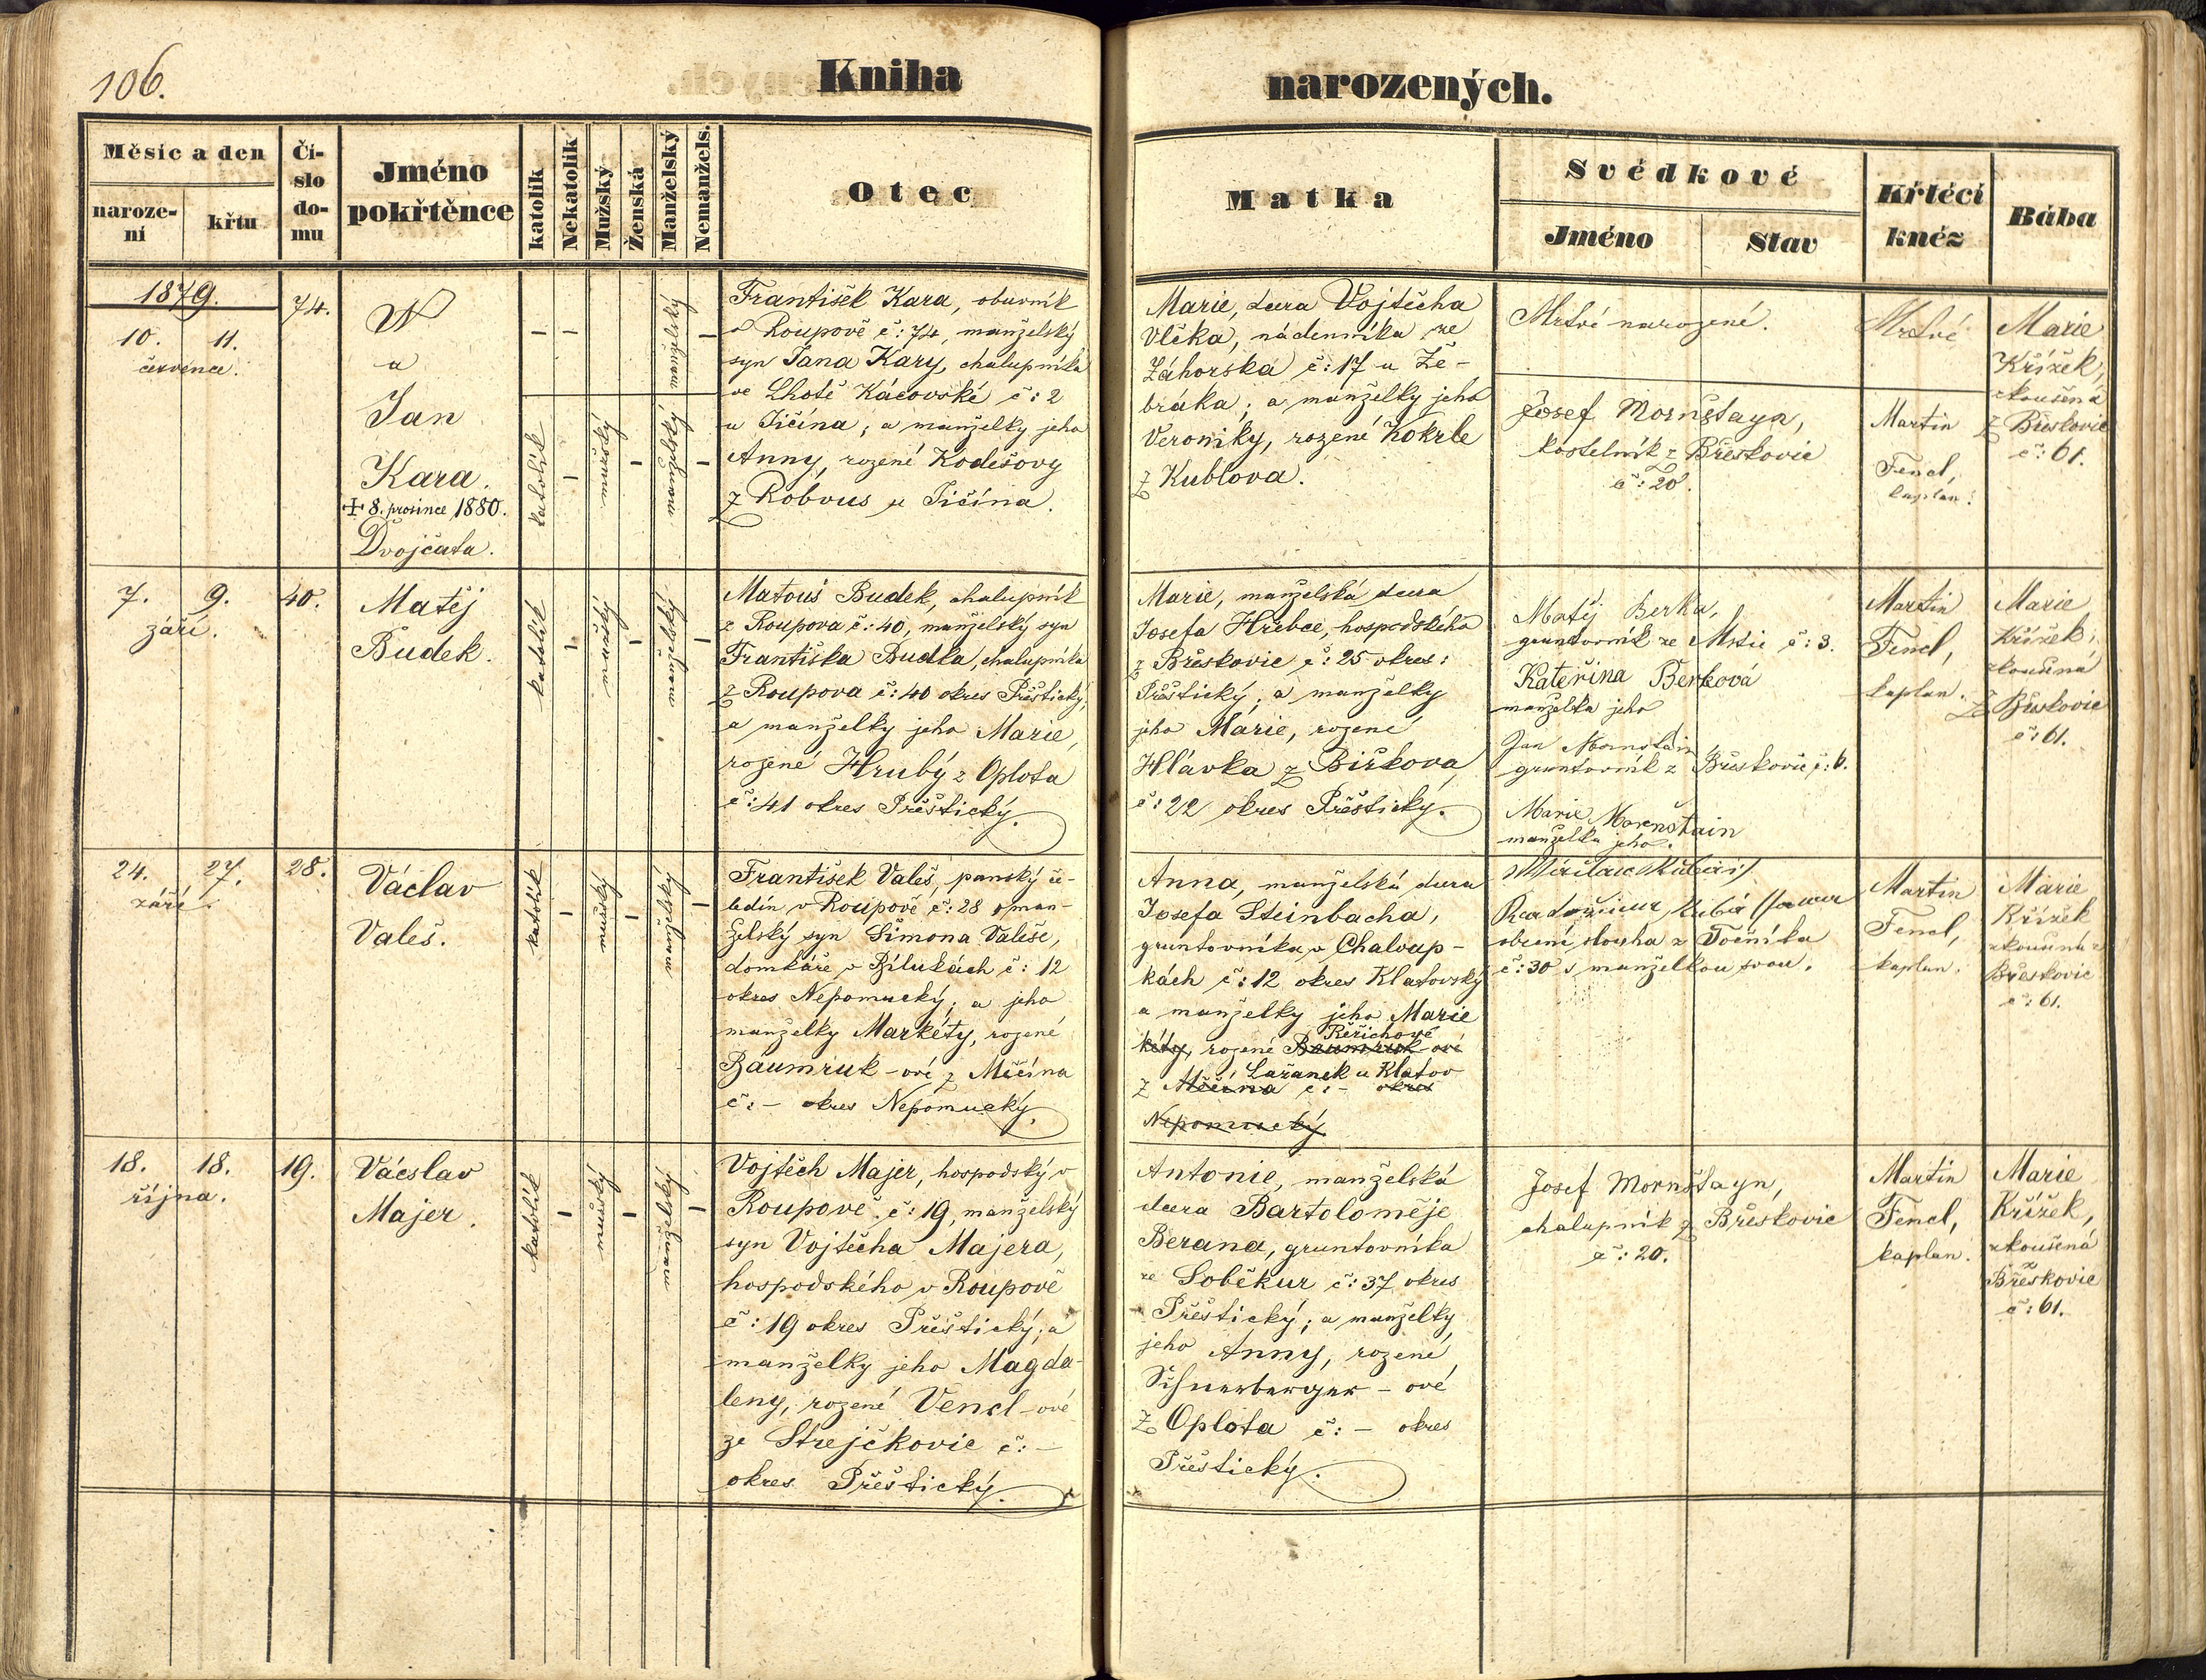 106.
Kniha
narozených.
Měsíc a den
naroze-
ní
křtu
Čí-
slo
do-
mu
Jméno
pokřtěnce
katolík
Nekatolík
Mužský
Ženská
Manželský
Nemanžels.
Otec
Matka
Svědkové
Jméno
Stav
Křtěcí
kněz
Bába
1879.
10. 11.
července.
74.
a
Jan
Kara.
+ 8. prosince 1880.
Dvojčata.
- -
manželský
-
katolík
-
mužský
-
manželský
-
František Kara, obuvník
v Roupově č: 74, manželský
syn Jana Kary, chalupníka
ve Lhotě Kácovské č: 2
u Jičína; a manželky jeho
Anny, rozené Kodešovy
z Robous u Jičína.
Marie, dcera Vojtěcha
Vlčka, nádenníka ze
Záhorska č: 17 u Že-
bráka; a manželky jeho
Veroniky, rozené Kokrle
z Kublova.
Mrtvé narozené.
Josef Mornštayn,
kostelník z Břeskovic
č: 20.
Mrtvé
Martin
Fencl,
kaplan.
Marie
Křížek,
zkoušená
z Břeskovic
č: 61.
7. 9.
září.
40.
Matěj
Budek.
katolík
-
mužský
-
manželský
-
Matouš Budek, chalupník
z Roupova č: 40, manželský syn
Františka Budka, chalupníka
z Roupova č: 40 okres Přeštický,
a manželky jeho Marie,
rozené Hrubý z Oplota
č: 41 okres Přeštický.
Marie, manželská dcera
Josefa Hřebce, hospodského
z Břeskovic č: 25 okres:
Přeštický; a manželky
jeho Marie, rozené
Hlávka z Biřkova
č: 22 okres Přeštický.
Matěj Berka,
gruntovník ze Mstic č: 3.
Kateřina Berková
manželka jeho
Jan Mornštain
gruntovník z Břeskovic č: 6.
Marie Mornštain
manželka jeho.
Martin
Fencl,
kaplan.
Marie
Křížek,
zkoušená
z Břeskovic
č: 61.
24. 27.
září.
28.
Václav
Valeš.
katolík
-
mužský
-
manželský
-
František Valeš, panský če-
ledín v Roupově č: 28, man-
želský syn Šimona Valeše,
domkáře v Bílukách č: 12
okres Nepomucký; a jeho
manželky Markéty, rozené
Baumruk-ové z Měčína
č: - okres Nepomucký.
Anna, manželská dcera
Josefa Steinbacha,
gruntovníka v Chaloup-
kách č: 12 okres Klatovský
a manželky jeho Marie
Řeřichové
kéty, rozené Baumruk-ové
Lažanek u Klatov
z Měčína č: - okres
Nepomucký
obecní sluha z Točníka
č: 30 s manželkou svou.
Martin
Fencl,
kaplan.
Marie
Křížek
zkoušená z
Břeskovic
č: 61.
18. 18.
října.
19.
Václav
Majer.
katolík
-
mužský
-
manželský
-
Vojtěch Majer, hospodský v
Roupově č: 19, manželský
syn Vojtěcha Majera,
hospodského v Roupově
č: 19 okres Přeštický; a
manželky jeho Magda-
leny, rozené Vencl-ové
ze Strejčkovic č: -
okres Přeštický.
Antonie, manželská
dcera Bartoloměje
Berana, gruntovníka
ze Soběkur č: 37 okres
Přeštický; a manželky
jeho Anny, rozené
z Oplota č: - okres
Přeštický.
Josef Mornštayn,
chalupník z Břeskovic
č: 20.
Martin
Fencl,
kaplan.
Marie
Křížek,
zkoušená
z
Břeskovic
č: 61.